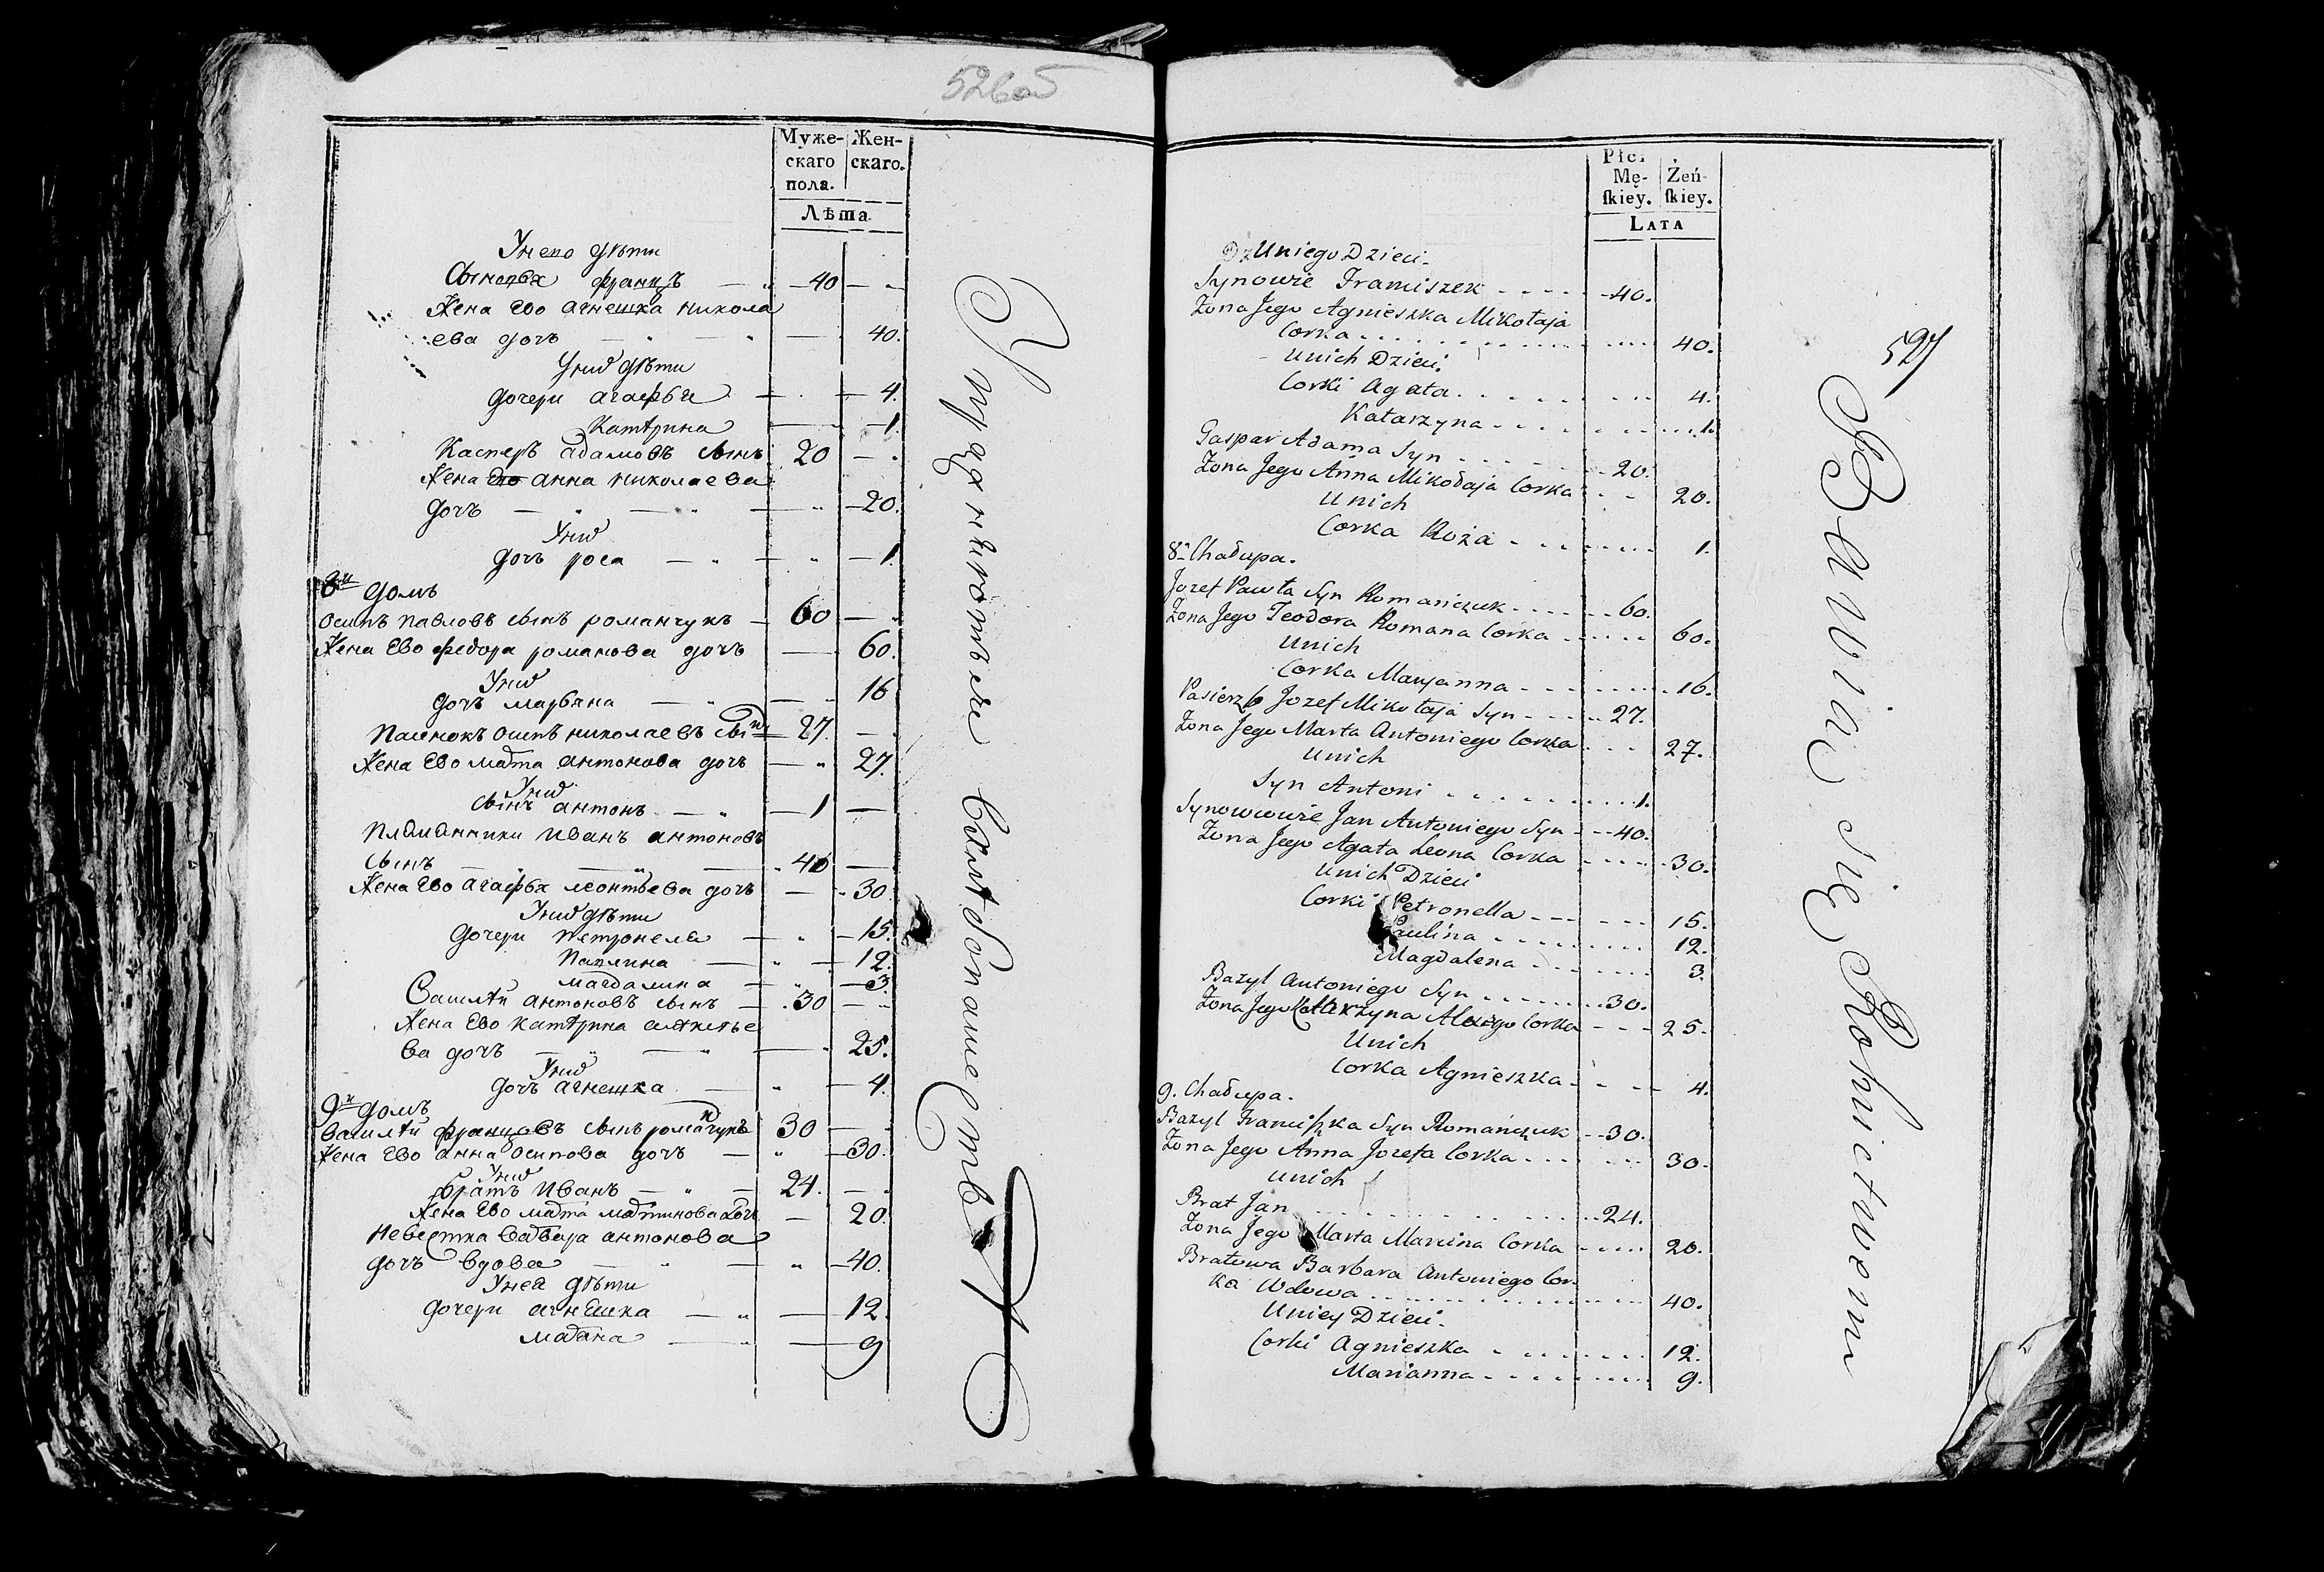 526об
Муже- Жен-
скаго скаго.
пола.
Лѣта
Унево дѣти
Сыновья францъ 40
Жена Ево агнешка никола
ева дочъ 40.
Уних дѣти
дочери агафья 4.
Катѣрина 1.
Касперъ адамовъ сынъ 20
Жена Ево анна николаева
дочъ 20.
Уних
дочъ роса 1.
8й домъ
осипъ павловъ сынъ романчукъ 60
Жена Ево федора романова дочъ 60.
Уних
дочъ марьяна 16
Пасинокъ осипъ николаевъ сынъ 27.
Жена Ево марта антонова дочъ 27.
Уних
сынъ антонъ 1
племянники иванъ антоновъ
сынъ 40
Жена Ево агафья леонтьева дочъ 30.
Уних дѣти
дочери петронеля 15.
Паулина 12.
магдалина 3.
Василѣй антоновъ сынъ 30
Жена Ево катѣрина
ва дочъ 25.
Уних
дочъ агнешка 4.
9й домъ
василѣй францовъ сынъ романчукъ 30
Жена Ево анна осипова дочъ 30.
Уних
братъ иванъ 24.
Жена Ево марта мартинова дочъ 20.
невестка варвара антонова
дочъ вдова 40.
Унея дѣти
дочери агнешка 12.
марьяна 9
У
Płci
Mę- Żeń-
ſkiey. ſkiey.
LATA
Uniego Dzieci.
Synowie Franciszek 40.
Żona Jego Agnieszka Mikołaja
Corka 40.
Unich Dzieci.
Corki Agata 4.
Katarzyna 1.
Gaspar Adama Syn 20.
Żona Jego Anna Mikołaja Corka 20.
Unich
Corka Roża 1.
8. Chałupa.
Jozef Pawła Syn Romańczuk 60.
Żona Jego Teodora Romana Corka 60.
Unich
Corka Maryanna 16.
Pasierzb Jozef Mikołaja Syn 27.
Żona Jego Marta Antoniego Corka 27.
Unich
Syn Antoni 1.
Synowowie Jan Antoniego Syn 40.
Żona Jego Agata Leona Corka 30.
Unich Dzieci
Corki Petronella 15.
Paulina 12.
Magdalena 3.
Bazyl Antoniego Syn 30.
Żona Jego Katarzyna Corka 25.
Unich
Corka Agnieszka 4.
9. Chałupa.
Bazyl Franciszka Syn Romańczuk 30.
Żona Jego Anna Jozefa Corka 30.
Unich
Brat Jan 24.
Żona Jego Marta Marcina Corka 20.
Bratowa Barbara Antoniego Cor-
ka Wdowa 40.
Uniey Dzieci.
Corki Agnieszka 12.
Marianna 9.
527
Bawią się Rolnictwem